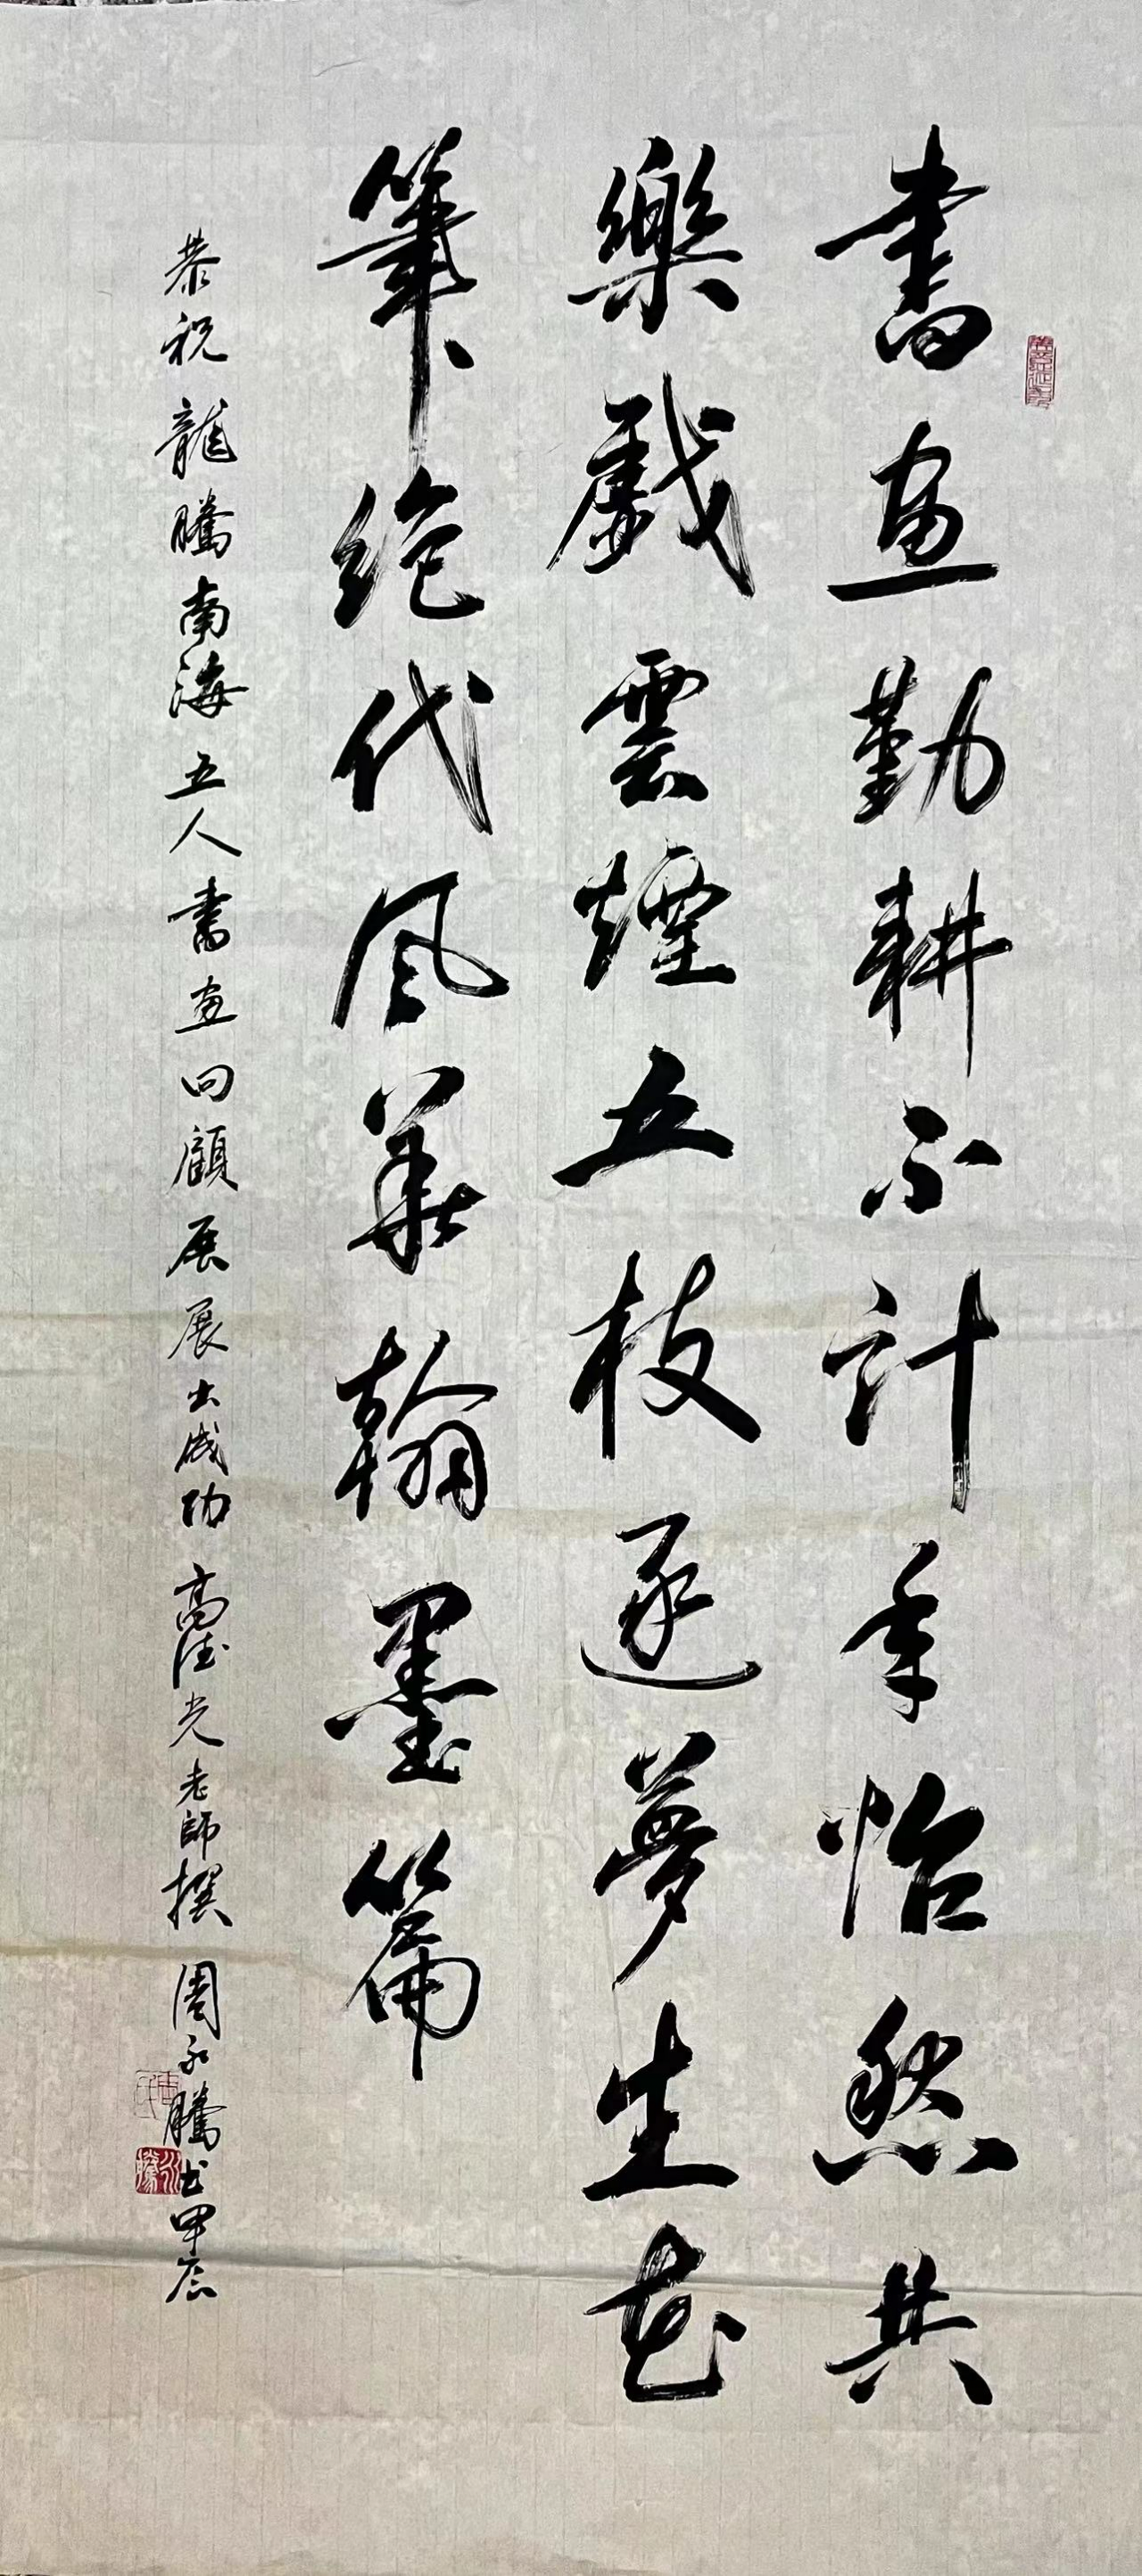 書畫勤耕不計年怡然共
樂戲雲煙五枝逐夢生花
筆絕代風華翰墨篇
恭祝龍騰南海五人書畫回顧展展出成功高德光老師撰周永騰书甲辰